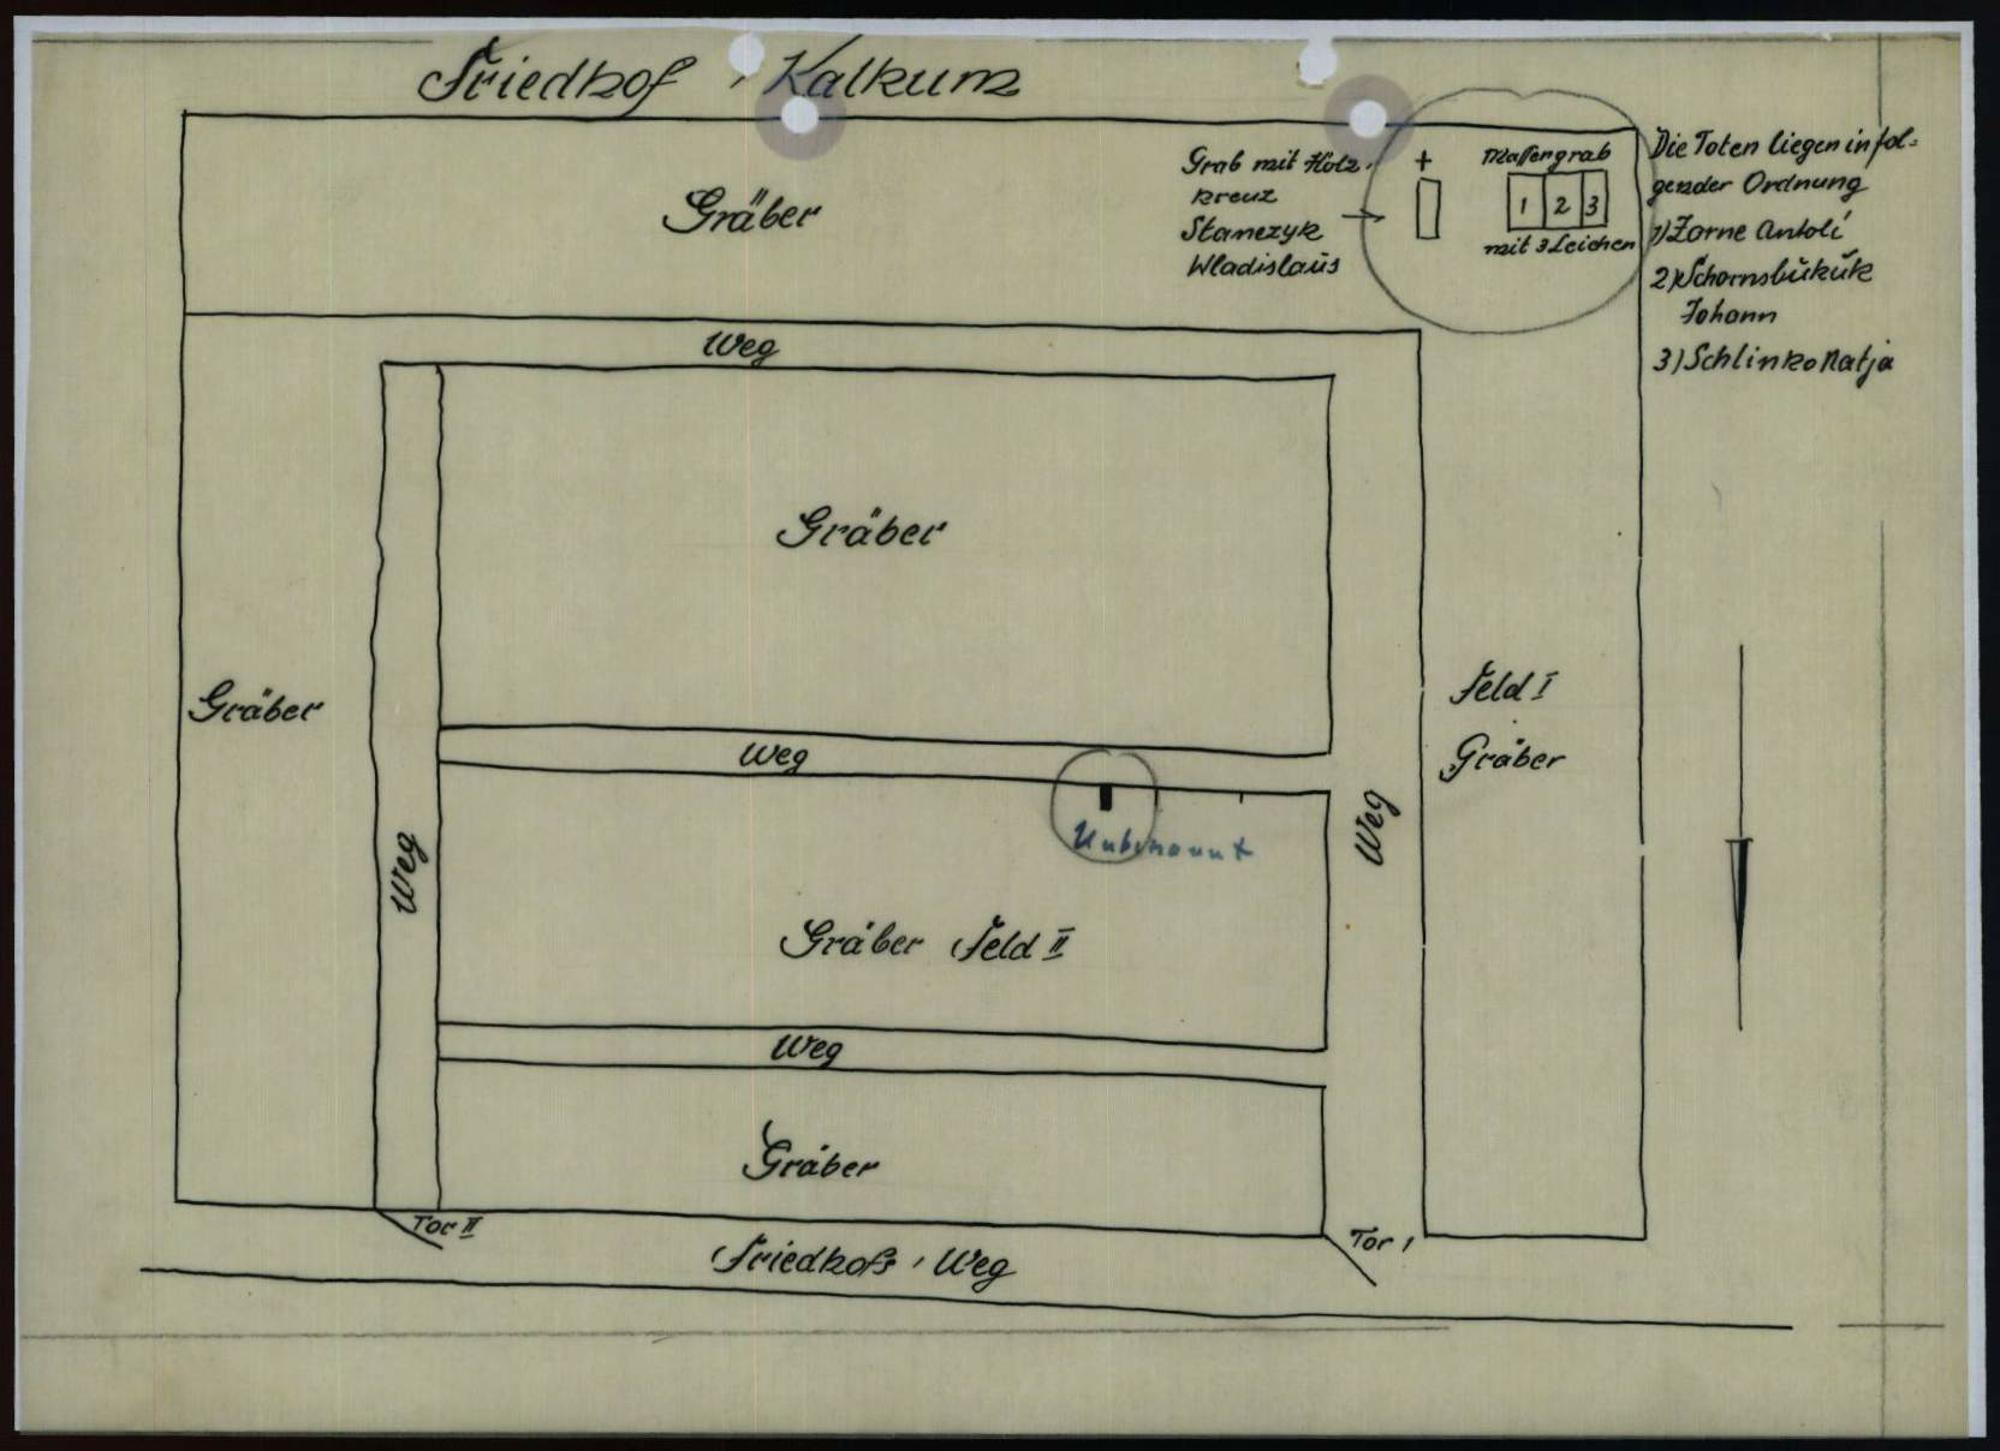 Friedhof - Kalkum
Grab mit Holz-
kreuz
Stanczyk
Wladislaus
+
Massengrab
1 2 3
mit 3 Leichen
Die Toten liegen in fol-
gender Ordnung
1) Zorne Antoli
2) Schornsbukuk
Johann
3) Schlinko Natja
Gräber
Weg
Gräber
Gräber
Weg
Unbekannt
Weg
Weg
Feld I
Gräber
Gräber Feld II
Weg
Gräber
Tor II
Tor I
Friedhofs-Weg